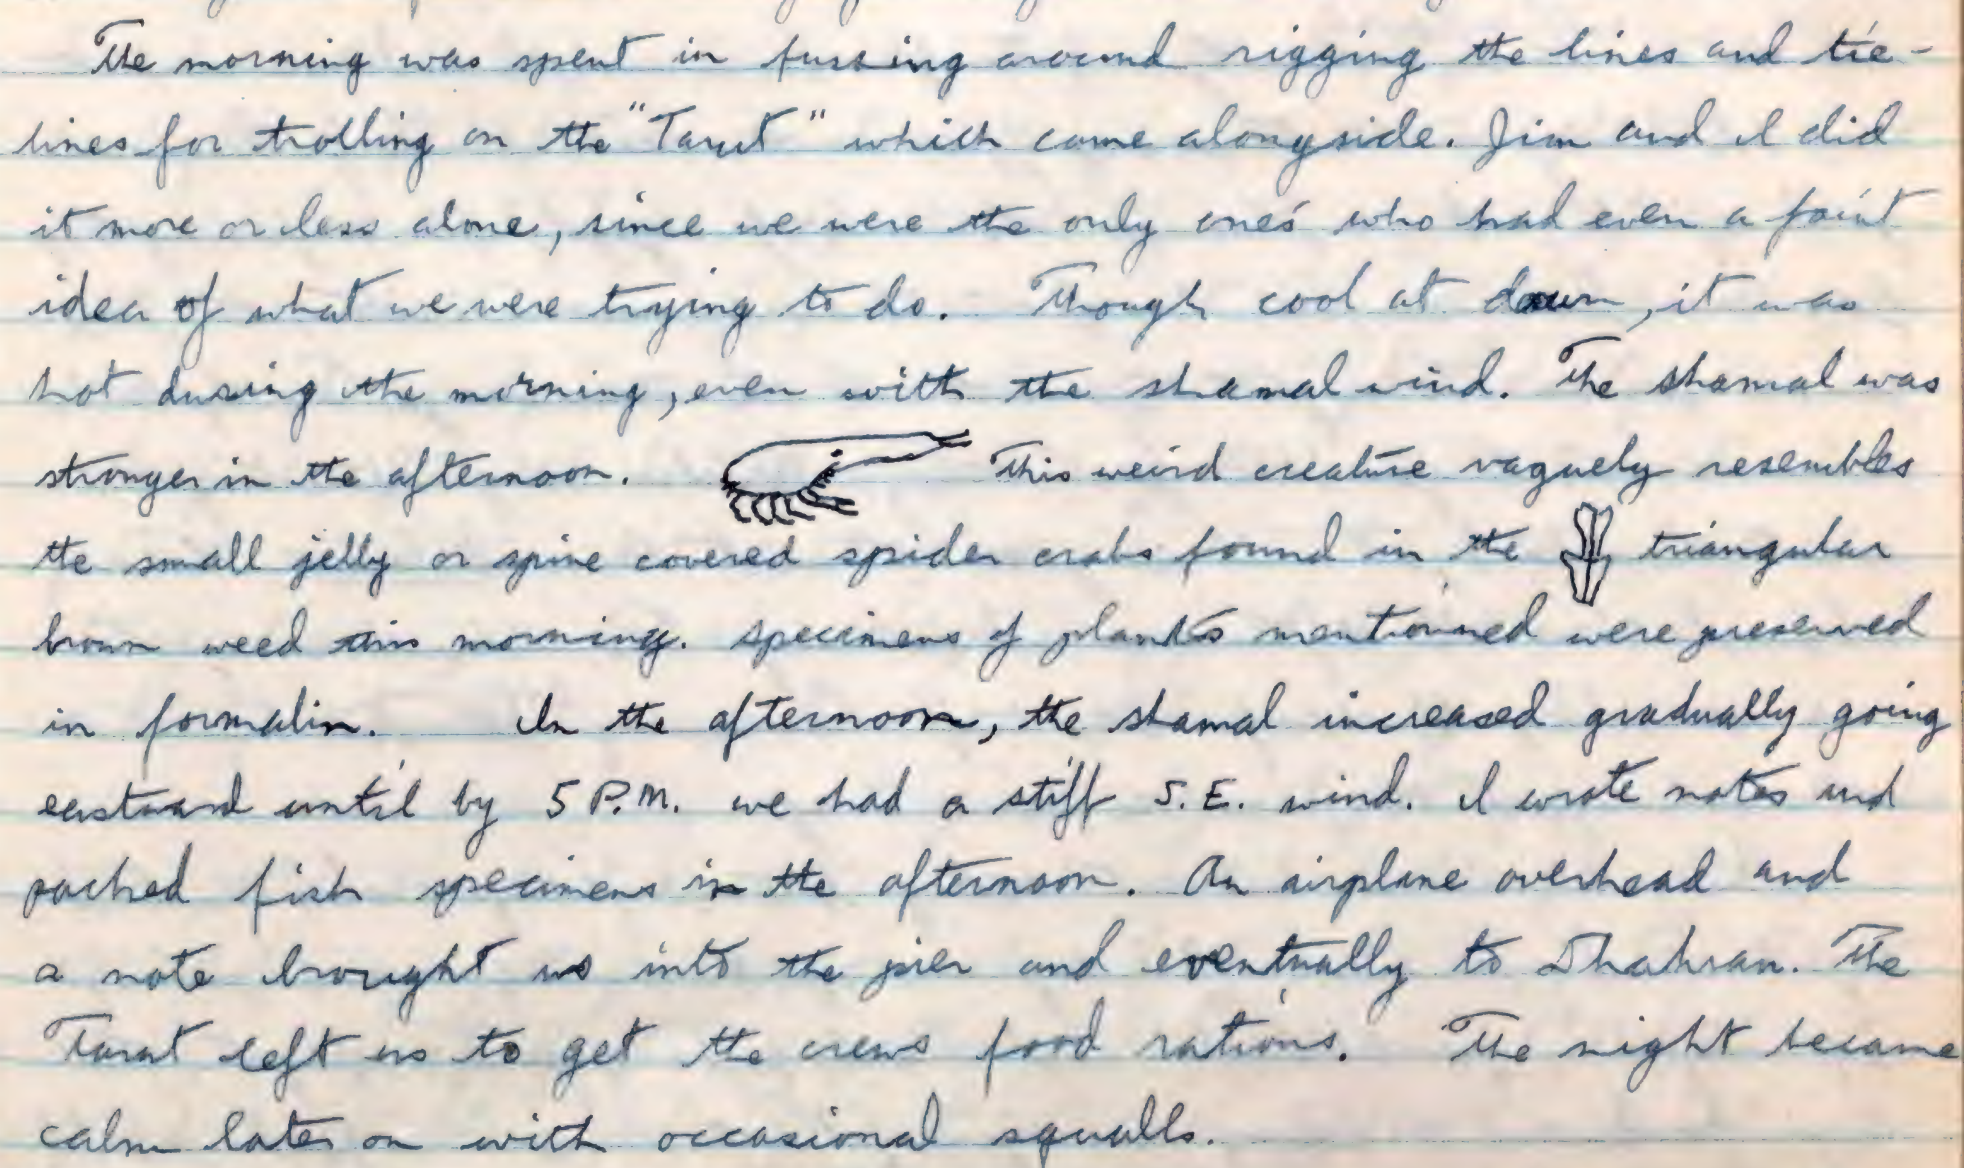 The morning was spent in fussing around rigging the lines and tie-
lines for trolling on the "Tarut" which came alongside. Jim and I did
it more or less alone, since we were the only ones who had even a faint
idea of what we were trying to do. Though cool at dawn, it was
hot during the morning, even with the shamal wind. The shamal was
stronger in the afternoon. This weird creature vaguely resembles
the small jelly or spine covered spider crabs found in the triangular
brown weed this morning. Specimens of plants mentioned were preserved
in formalin. In the afternoon, the shamal increased gradually going
eastward until by 5 P.M. we had a stiff S.E. wind. I wrote notes and
packed fish specimens in the afternoon. An airplane overhead and
a note brought us into the pier and eventually to Dhahran. The
Tarut left us to get the crews food rations. The night became
calm later on with occasional squalls.